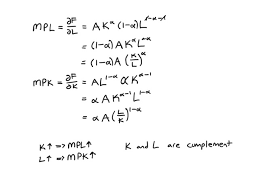 MPL = ∂F/∂L = A K^α (1-α) L^(1-α-1)
= (1-α) A K^α L^(-α)
= (1-α) A (K/L)^α
MPK = ∂F/∂K = A L^(1-α) α K^(α-1)
= α A K^(α-1) L^(1-α)
= α A (L/K)^(1-α)
K↑ => MPL↑ K and L are complement
L↑ => MPK↑